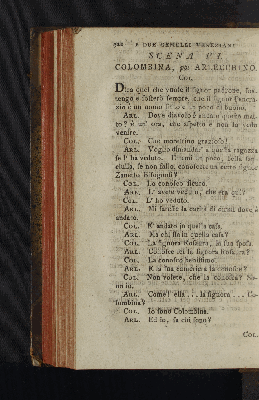 I DUE GEMELLI VENEZIANI
SCENA VI.
COLOMBINA, poi ARLECCHINO.
COL.
Dica quel che vuole il signor padrone, sos-
tengo e sosterrò sempre, che il signor Pancra-
zio è un uomo
ARL. Dove diavolo è questo mat-
to? è un' ora, che aspetto e non lo vedo
venire.
COL. Che moretino grazioso!
ARL. Voglio dimandar a questa ragazza
se l' ha veduto. Ditemi un poco, bella fan-
ciulla, se non fallo, conoscete un certo signor
Zanetto Bisognosi?
COL. Lo conosco sicuro.
ARL. L' avete veduto, che era qui?
COL. L' ho veduto.
ARL. Mi fareste la carità di dirmi dove è
andato.
COL. E' andato in quella casa?
ARL. Ma chi sta in quella casa?
COL. La signora Rosaura, la sua sposa.
ARL. Conoscete la signora Rosaura?
COL. La conosco benissimo.
ARL. E la sua cameriera la conoscete?
COL. Non volete, che la conosca?
ARL. Come! ella ... la signora ... Co-
lombina?
COL. Io sono Colombina.
ARL. Ed io, sa chi sono?
COL.